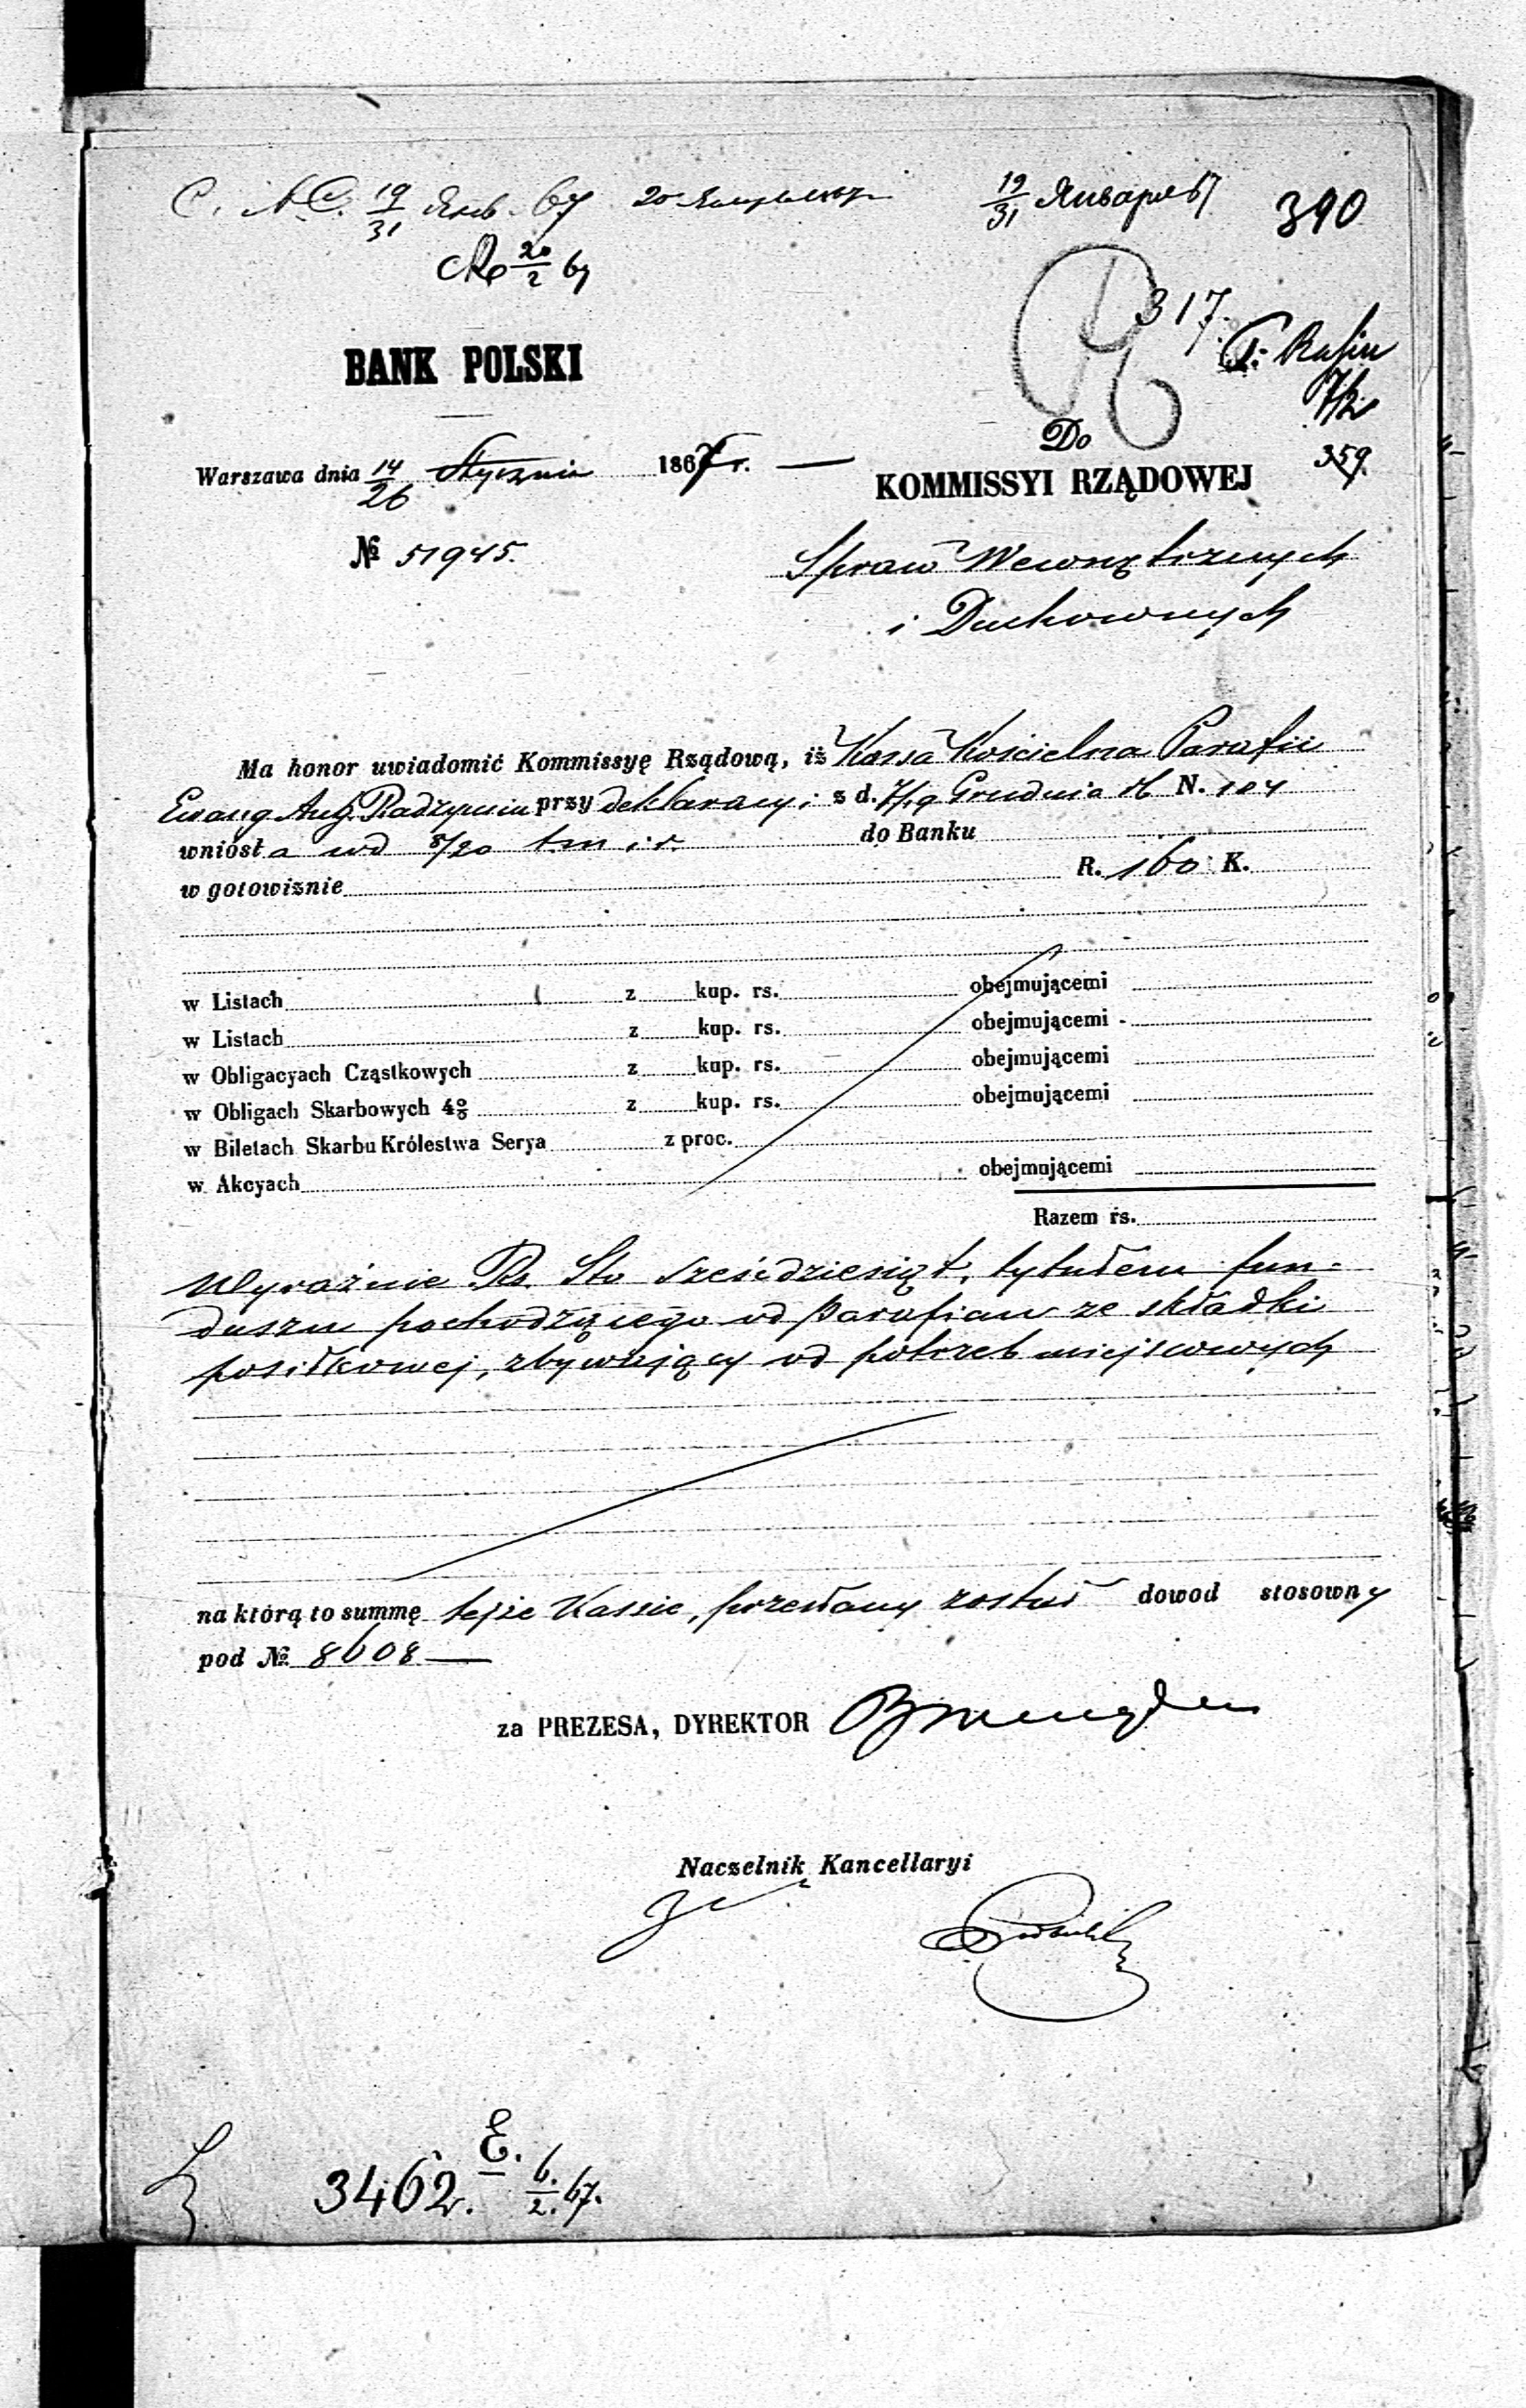 19/31 Янв 67
19/31 Января 67
390
20/2 67
317.
BANK POLSKI
7/2
Do
359.
Warszawa dnia 14/26 Stycznia 1867 r.
KOMMISSYI RZĄDOWEJ
№ 51945.
Spraw Wewnętrznych
i Duchownych
Ma honor uwiadomić Kommissyę Rządową, iż Kassa Kościelna Parafii
Ewang Aug. Radzymin przy deklaracyi z d. 7/19 Grudnia N. 104
wniosła wd 8/20 t.m i r. do Banku
w gotowiznie R. 160 K.
w Listach z kup. rs. obejmującemi
w Listach z kup. rs. obejmującemi
w Obligacyach Cząstkowych z kup. rs. obejmującemi
w Obligach Skarbowych 4% z kup. rs. obejmującemi
w Biletach Skarbu Królestwa Serya z proc.
w Akcyach obejmującemi
Razem rs.
Wyraźnie Rs. Sto sześćdziesiąt, tytułem fun-
duszu pochodzącego od parafian ze składki
posiłkowej, zbywający od potrzeb miejscowych
na którą to summę tejże Kassie, przesłany został dowod stosowny
pod № 8608
za PREZESA, DYREKTOR
Naczelnik Kancellaryi
E.
3462. 6./2. 67.